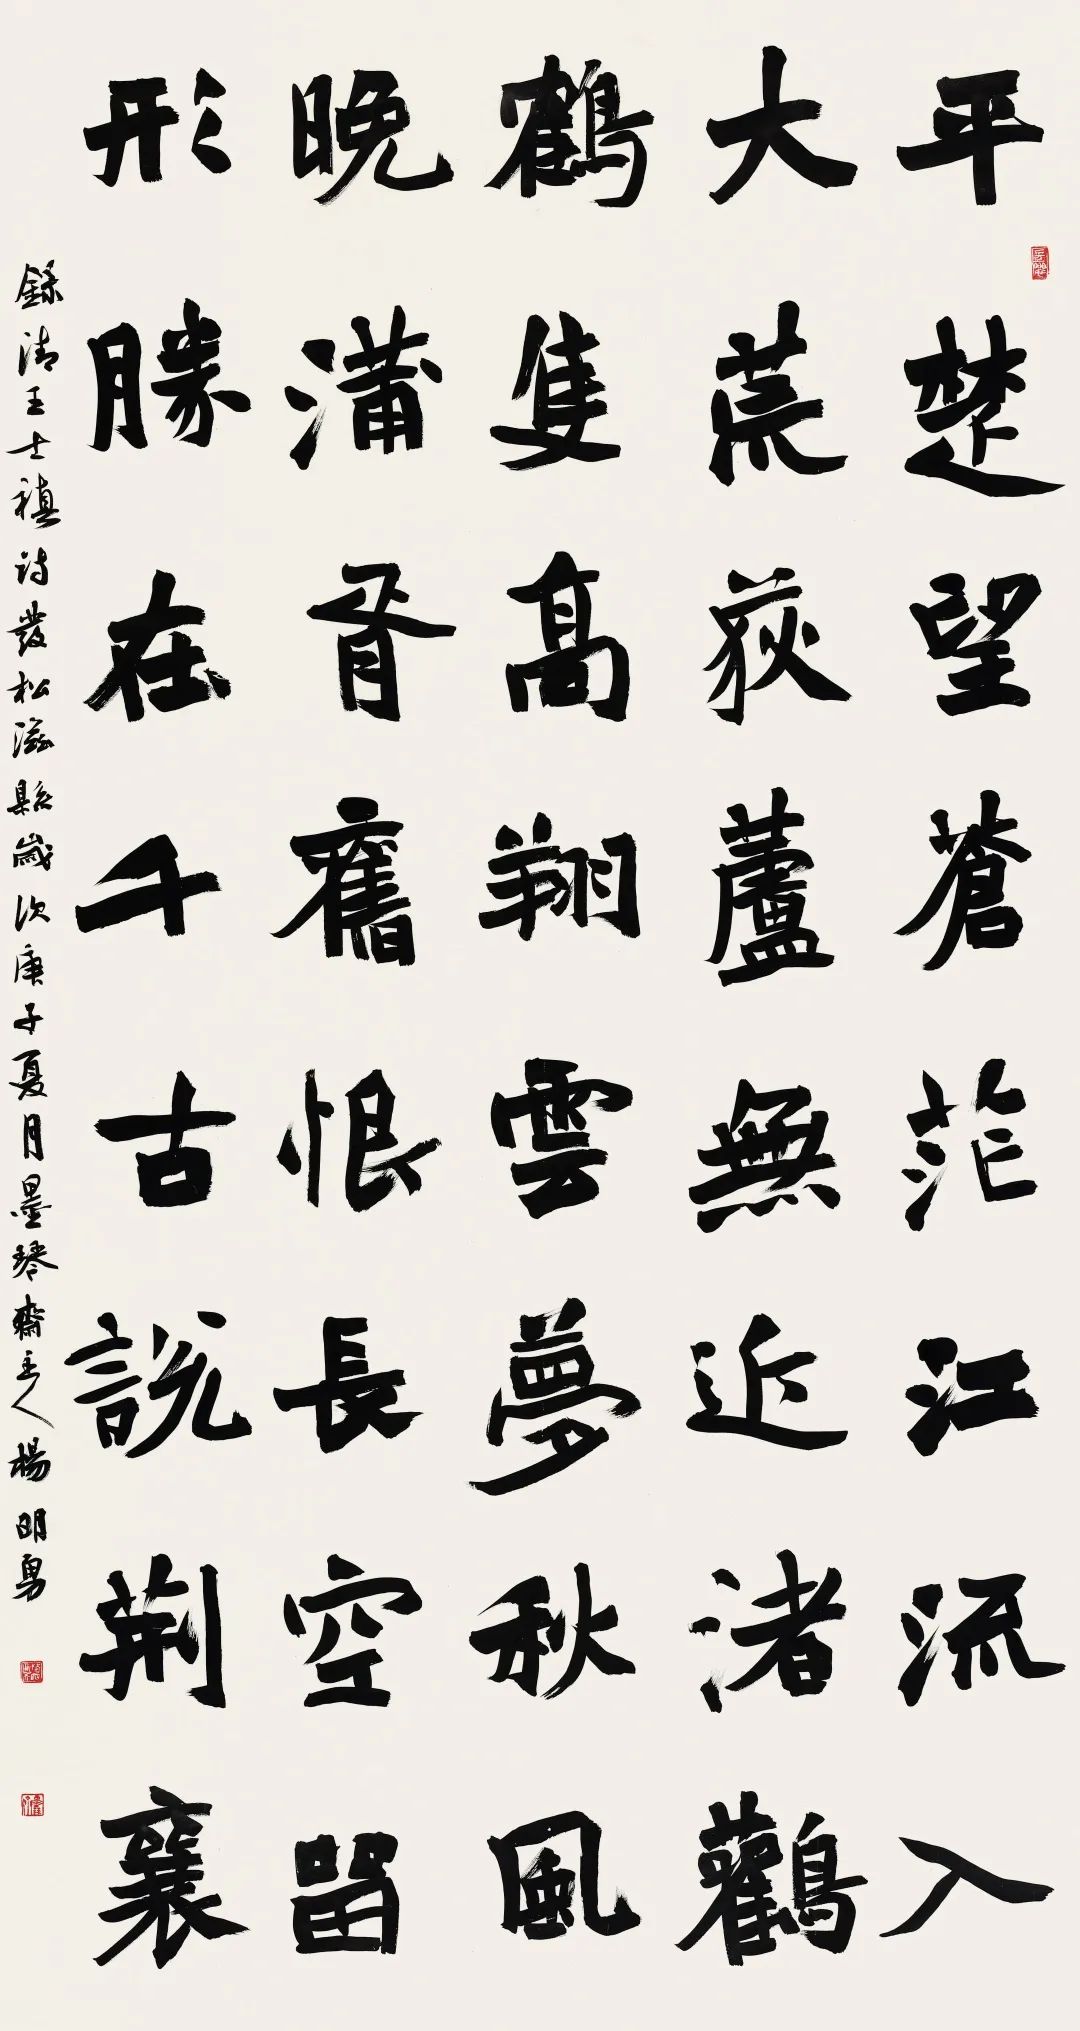 平楚望蒼茫江流入
大荒荻蘆無近渚鸛
鶴隻高翔雲夢秋風
晚蒲胥舊恨長空留
形勝在千古説荆襄
錄清王士禛詩發松滋縣歲次庚子夏月墨琴齋主人楊明勇